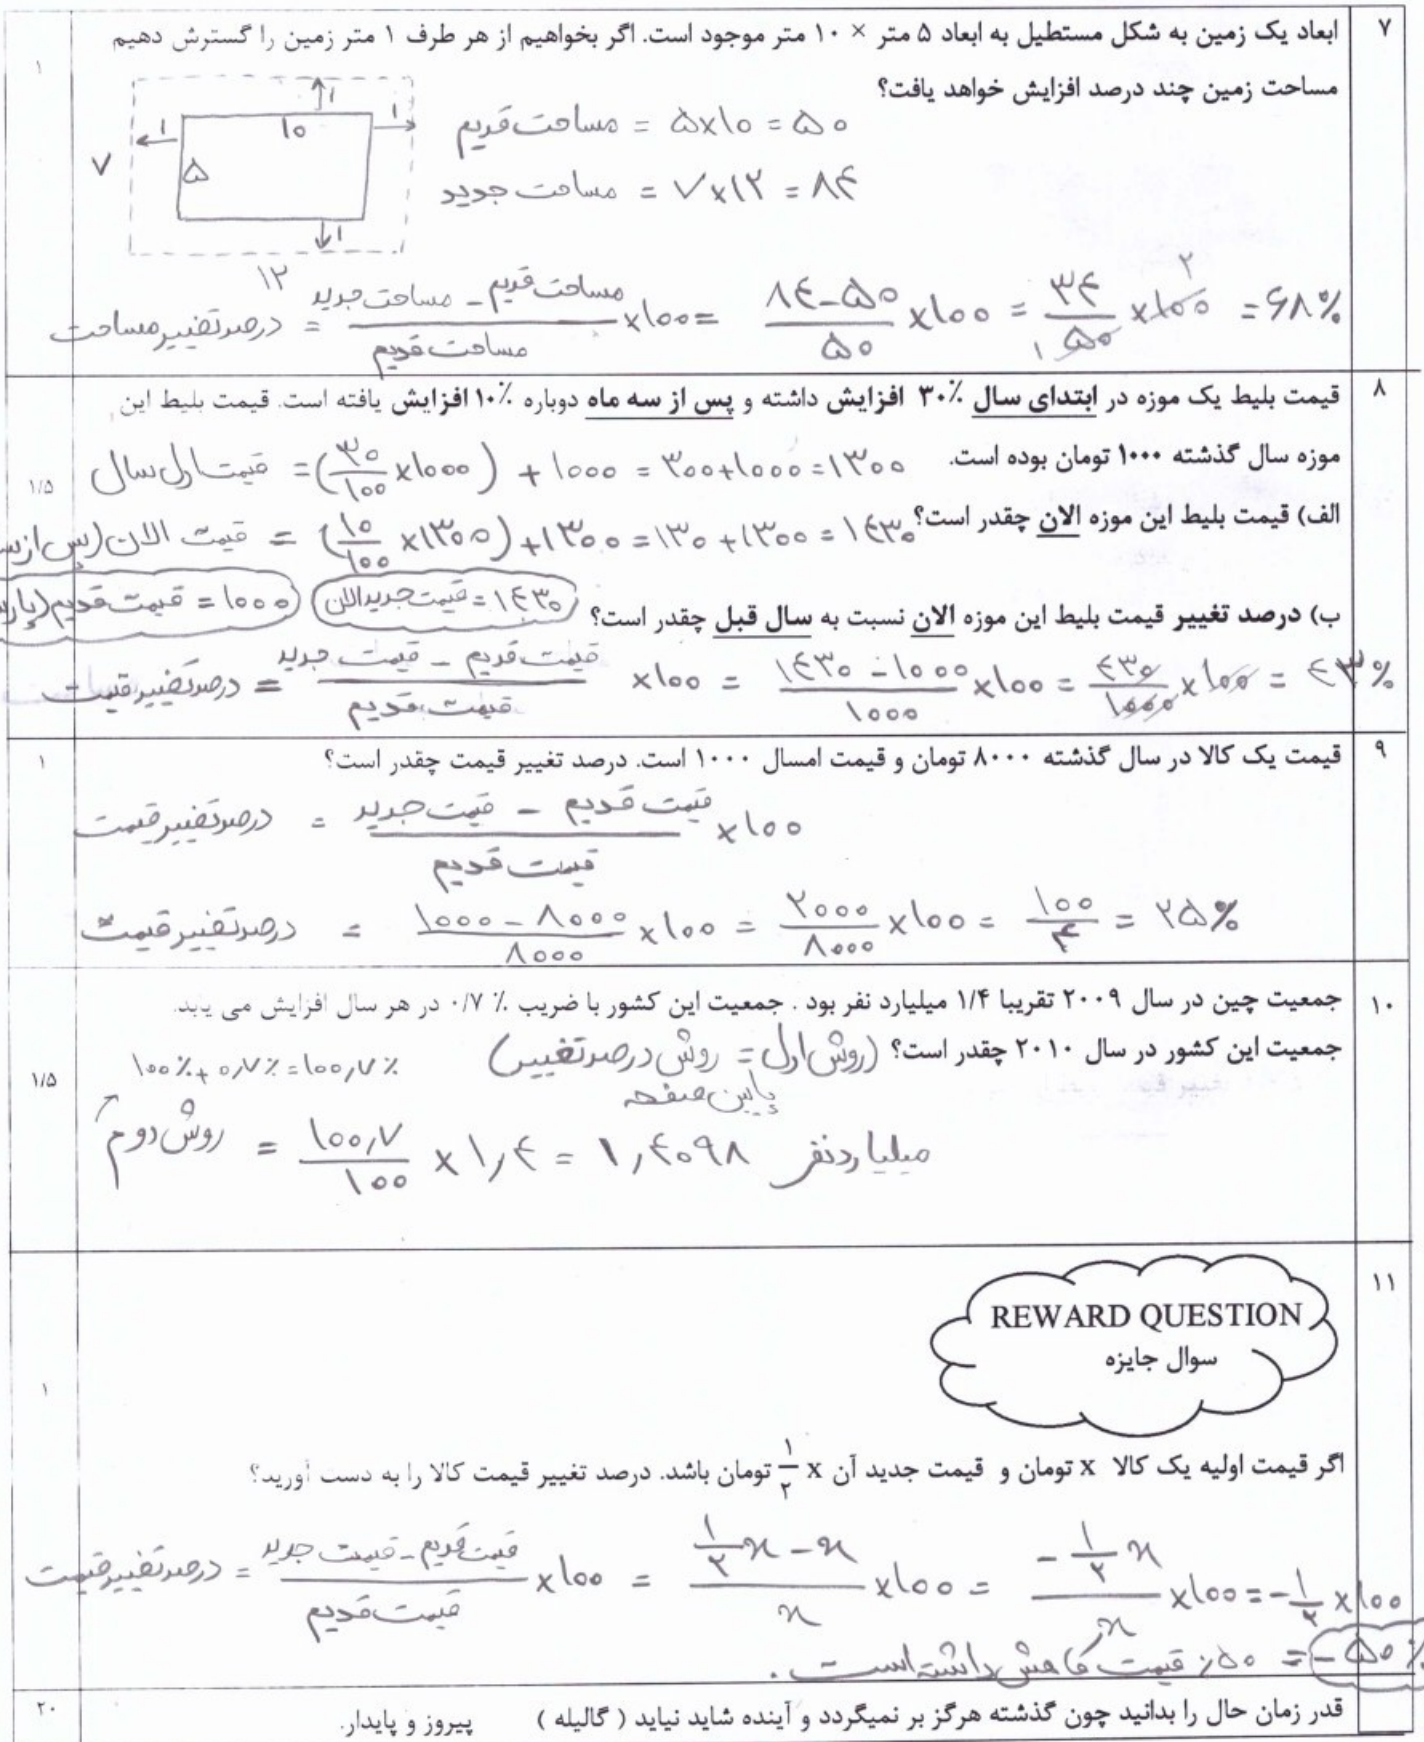 ۷
ابعاد یک زمین به شکل مستطیل به ابعاد ۵ متر × ۱۰ متر موجود است. اگر بخواهیم از هر طرف ۱ متر زمین را گسترش دهیم
۱
مساحت زمین چند درصد افزایش خواهد یافت؟
۱
۱۰
۱
۱
۵
۷
۱
۱۲
مساحت قدیم = ۵×۱۰ = ۵۰
مساحت جدید = ۷×۱۲ = ۸۴
درصد تغییر مساحت = (مساحت جدید - مساحت قدیم)/(مساحت قدیم) ×۱۰۰ = (۸۴-۵۰)/۵۰ ×۱۰۰ = ۳۴/۵۰ ×۱۰۰ = ۶۸%
۲
۱
۸
قیمت بلیط یک موزه در ابتدای سال ۳۰٪ افزایش داشته و پس از سه ماه دوباره ۱۰٪ افزایش یافته است. قیمت بلیط این
موزه سال گذشته ۱۰۰۰ تومان بوده است.
قیمت اول سال = (۳۰/۱۰۰ ×۱۰۰۰) + ۱۰۰۰ = ۳۰۰+۱۰۰۰ = ۱۳۰۰
۱/۵
الف) قیمت بلیط این موزه الان چقدر است؟
قیمت الان (پس از = (۱۰/۱۰۰ ×۱۳۰۰) + ۱۳۰۰ = ۱۳۰+۱۳۰۰ = ۱۴۳۰
ب) درصد تغییر قیمت بلیط این موزه الان نسبت به سال قبل چقدر است؟
۱۴۳۰ = قیمت جدید الان
۱۰۰۰ = قیمت قدیم
درصد تغییر قیمت = (قیمت جدید - قیمت قدیم)/(قیمت قدیم) ×۱۰۰ = (۱۴۳۰ - ۱۰۰۰)/۱۰۰۰ ×۱۰۰ = ۴۳۰/۱۰۰۰ ×۱۰۰ = ۴۳%
۹
قیمت یک کالا در سال گذشته ۸۰۰۰ تومان و قیمت امسال ۱۰۰۰۰ است. درصد تغییر قیمت چقدر است؟
۱
درصد تغییر قیمت = (قیمت جدید - قیمت قدیم)/(قیمت قدیم) ×۱۰۰
درصد تغییر قیمت = (۱۰۰۰ - ۸۰۰۰)/۸۰۰۰ ×۱۰۰ = ۲۰۰۰/۸۰۰۰ ×۱۰۰ = ۱۰۰/۴ = ۲۵%
۱۰
جمعیت چین در سال ۲۰۰۹ تقریبا ۱/۴ میلیارد نفر بود . جمعیت این کشور با ضریب ٪ ۰/۷ در هر سال افزایش می یابد.
جمعیت این کشور در سال ۲۰۱۰ چقدر است؟ (روش اول = روش درصد تغییر)
پایین صفحه
۱۰۰٪ + ۰٫۷٪ = ۱۰۰٫۷٪
۱/۵
روش دوم = ۱۰۰٫۷/۱۰۰ × ۱٫۴ = ۱٫۴۰۹۸ میلیارد نفر
۱۱
REWARD QUESTION
سوال جایزه
۱
اگر قیمت اولیه یک کالا x تومان و قیمت جدید آن ۱/۲ x تومان باشد. درصد تغییر قیمت کالا را به دست آورید؟
درصد تغییر قیمت = (قیمت جدید - قیمت قدیم)/(قیمت قدیم) ×۱۰۰ = (۱/۲ x - x)/x ×۱۰۰ = (-۱/۲ x)/x ×۱۰۰ = -۱/۲ ×۱۰۰
= -۵۰٪ = ۵۰٪ قیمت کاهش داشته است.
قدر زمان حال را بدانید چون گذشته هرگز بر نمیگردد و آینده شاید نیاید ( گالیله ) پیروز و پایدار.
۲۰